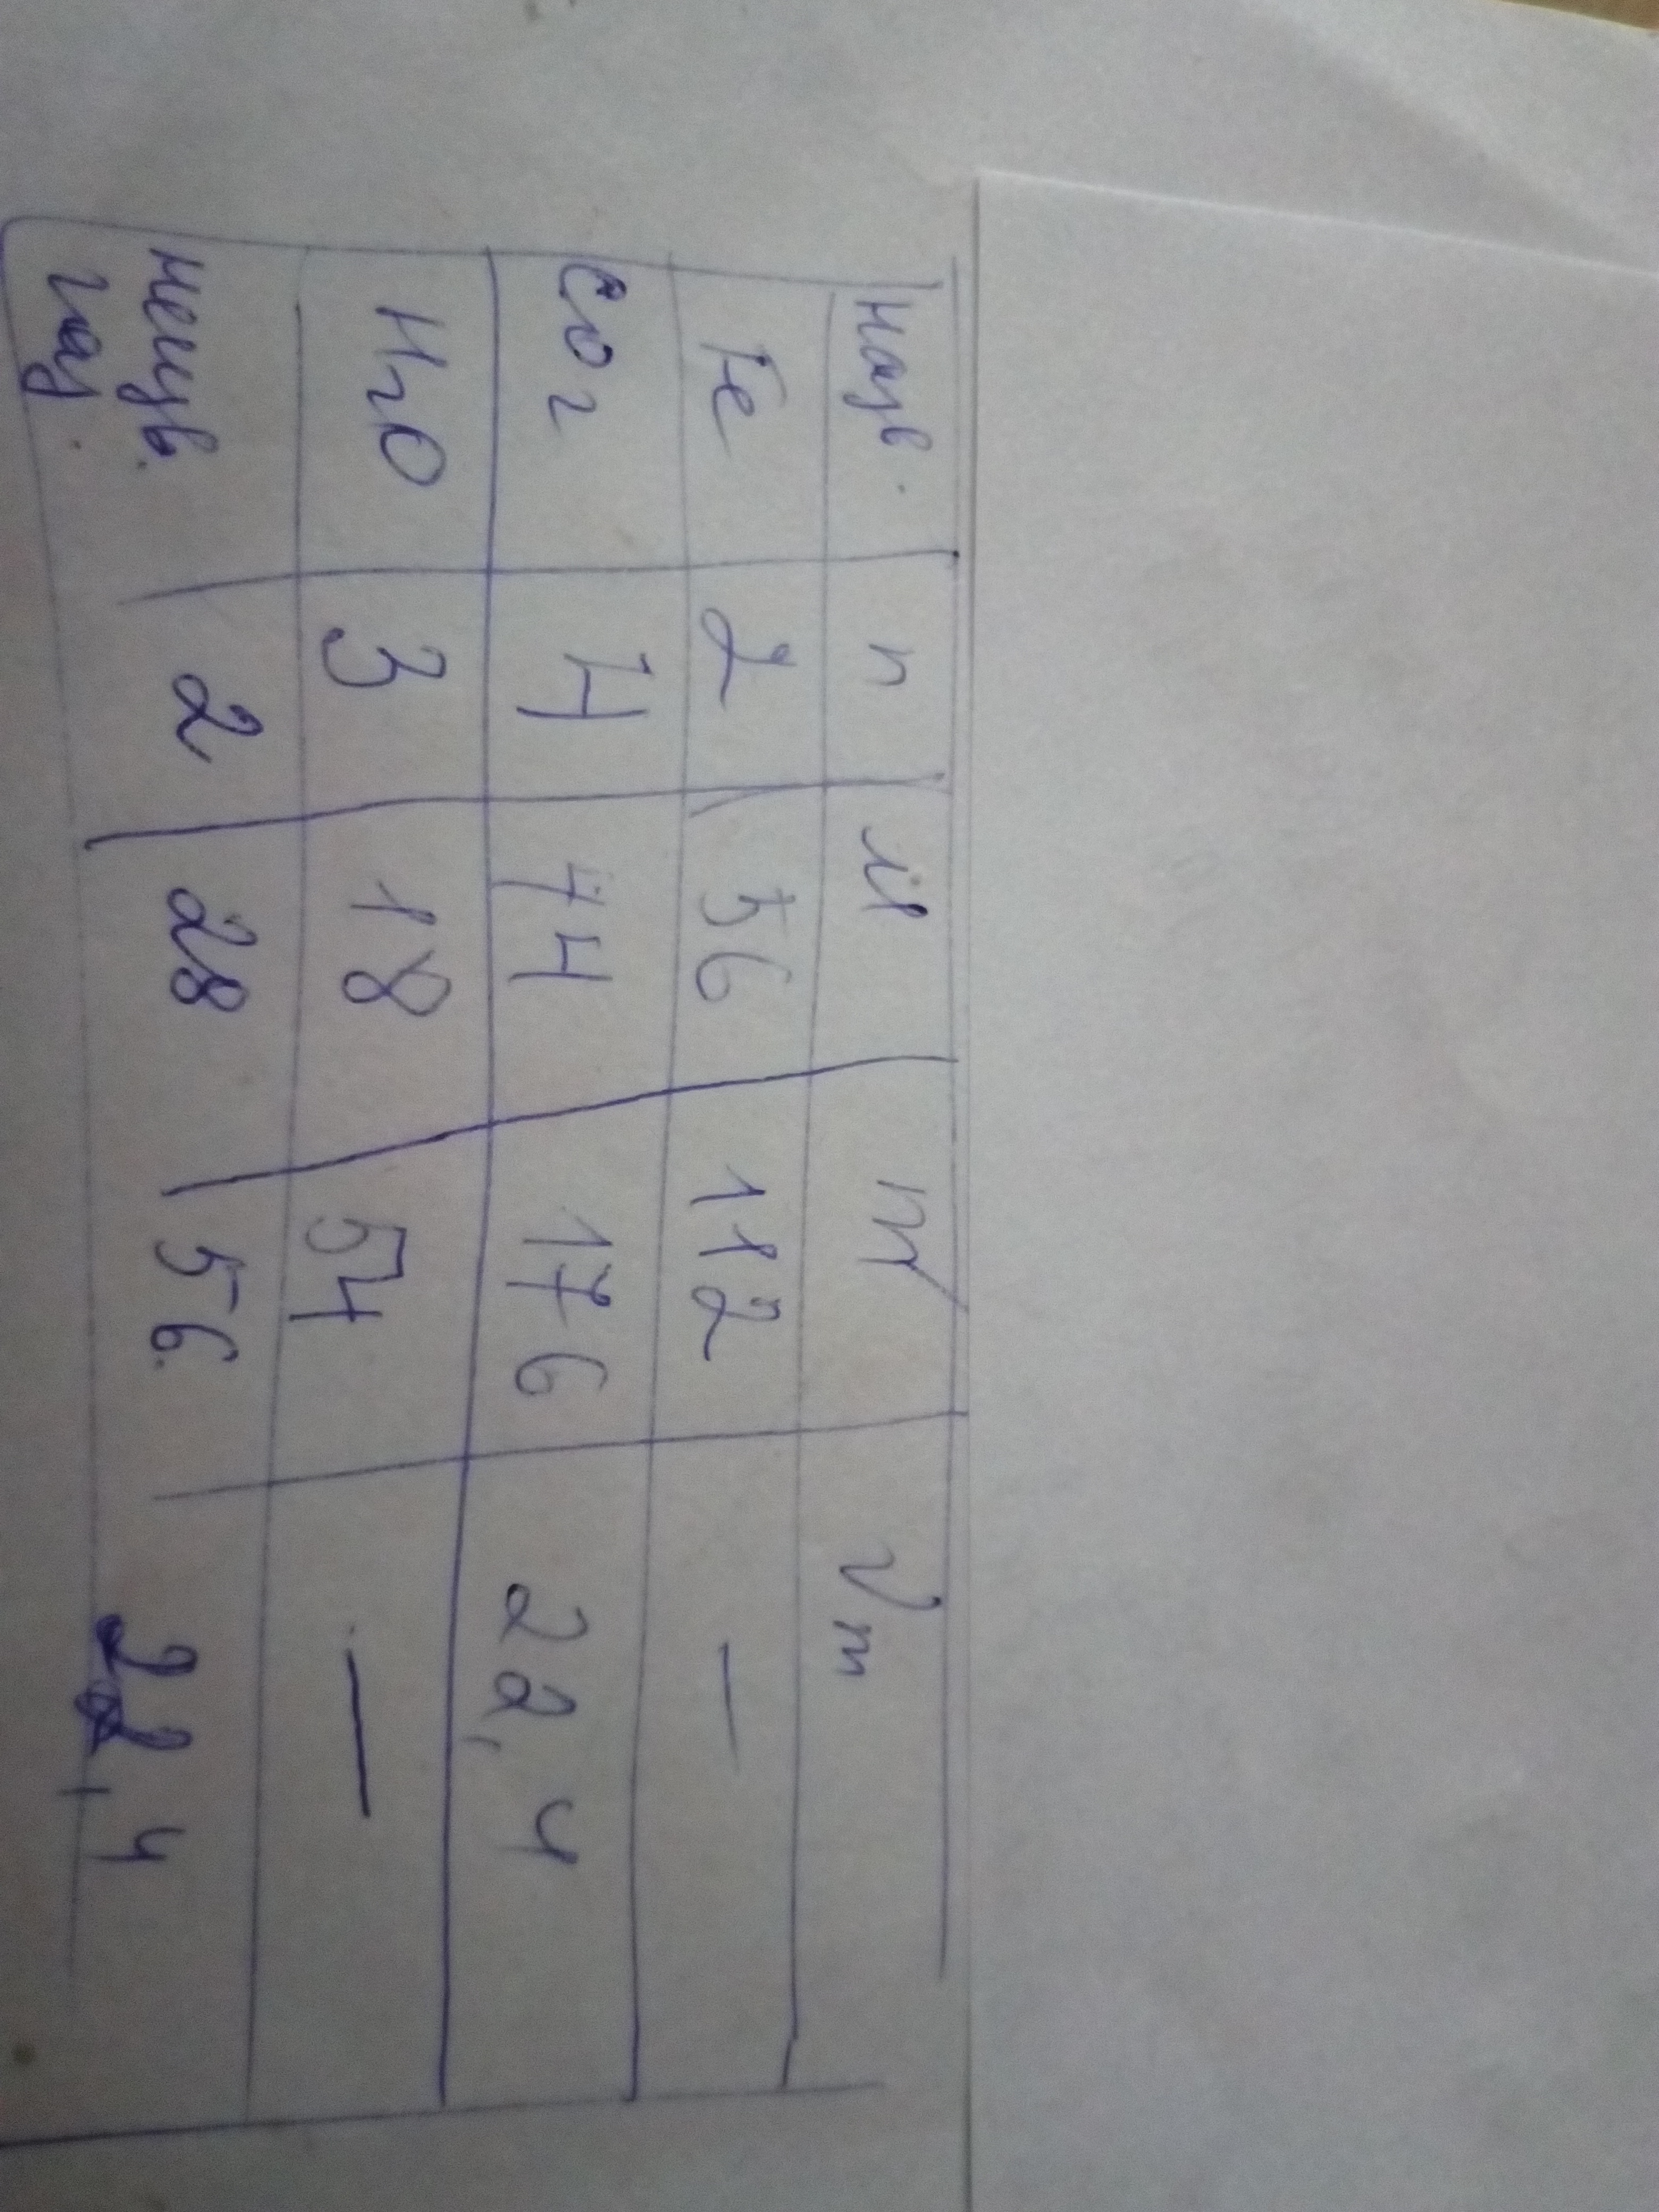 Назв. n M m Vm
Fe 2 56 112 —
CO2 4 44 176 22,4
H2O 3 18 54 —
неизв. 2 28 56 22,4
газ.